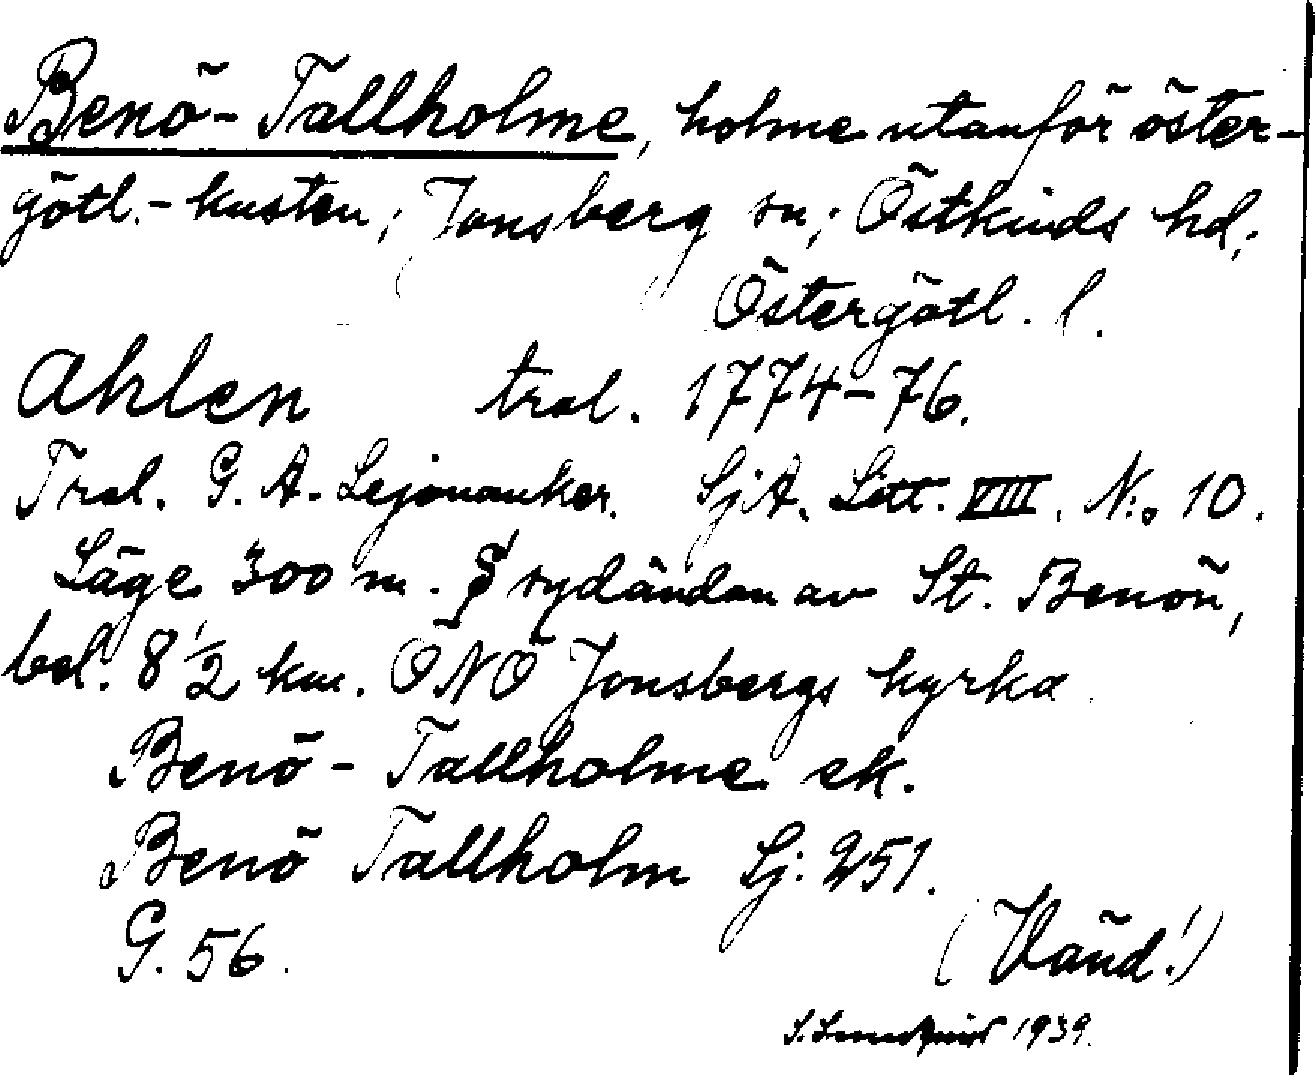 Benö-Tallholme, holme utanför öster-
götl.-kusten; Jonsberg sn; Östkinds hd;
Östergötl. l.
Ahlen trol. 1774-76.
Trol. G. A. Lejonanker. SjA. Litt. VIII. N:o 10.
Läge 300 m. S sydändan av St. Benön,
bel. 8 1/2 km. ÖNÖ Jonsbergs kyrka.
Benö-Tallholme ek.
Benö Tallholm Sj. 251.
G. 56.
(Vänd!)
S. 1939.